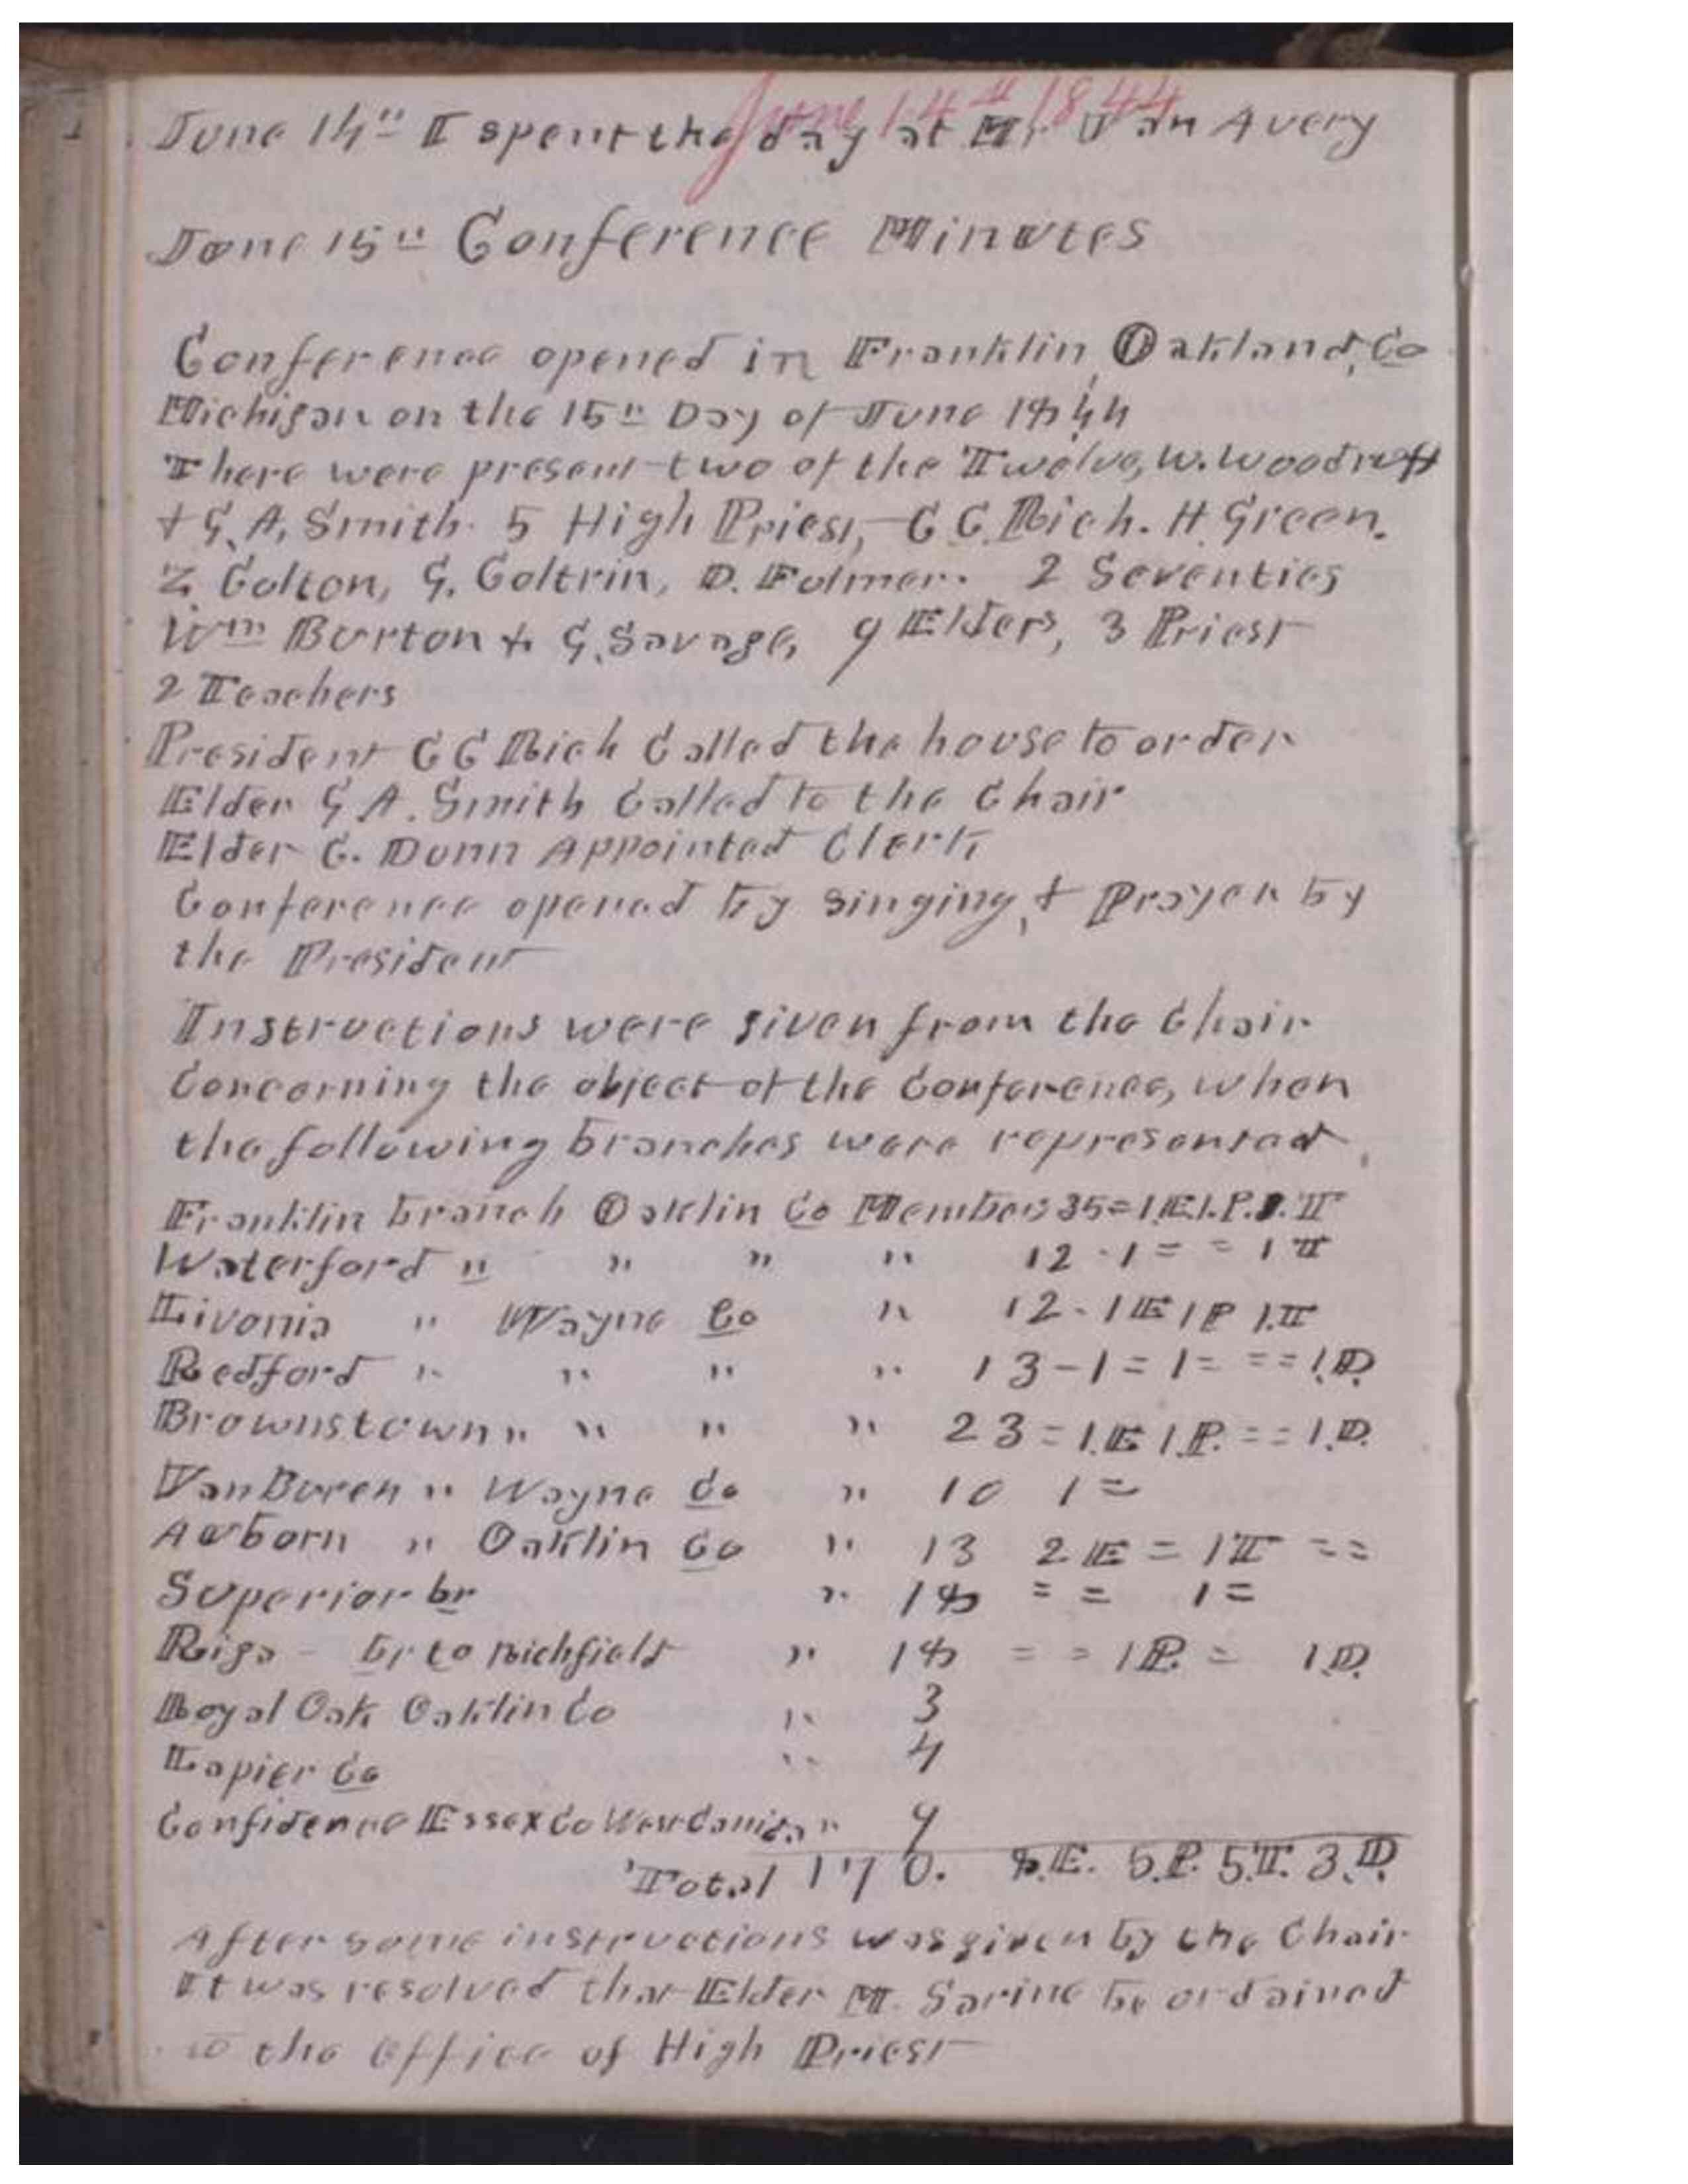 June 14th 1844
June 14" I spent the day at Mr Van Avery
June 15" Conference Minutes
Conference opened in Franklin, Oakland, Co
Michigan on the 15" Day of June 1844
There were present two of the Twelve, W. Woodruff
+ G. A. Smith. 5 High Priest, C C Rich. H. Green.
Z Colton, G. Coltrin, D. Fulmer. 2 Seventies
Wm Burton + G. Savage, 9 Elders, 3 Priest
2 Teachers
President C C Rich Called the house to order
Elder G A. Smith Called to the Chair
Elder C. Dunn Appointed Clerk,
Conference opened by singing, + Prayer by
the President
Instructions were given from the Chair
Concerning the object of the Conference, when
the following branches were represented,
Franklin branch Oaklin Co Members 35=1.E.1.P.1.T
Waterford " " " " 12 - 1 = = 1 T
Livonia " Wayne Co " 12 - 1 E 1 P 1.T
Redford " " " " 13 - 1 = 1 = == 1.D.
Brownstown " " " " 23 = 1.E 1.P. == 1.D.
Van Buren " Wayne Co " 10 1 =
Auborn " Oaklin Co " 13 2 E = 1 T ==
Superior br " 18 = = 1 =
Riga - br to Richfield " 18 = = 1 P. = 1.D.
Royal Oak Oaklin Co " 3
Lapier Co " 4
Confidence Essex Co West Canida " 9
Total 170. 8.E. 5.P. 5.T. 3.D.
After some instructions was given by the Chair
It was resolved that Elder M. Serine be ordained
to the office of High Priest